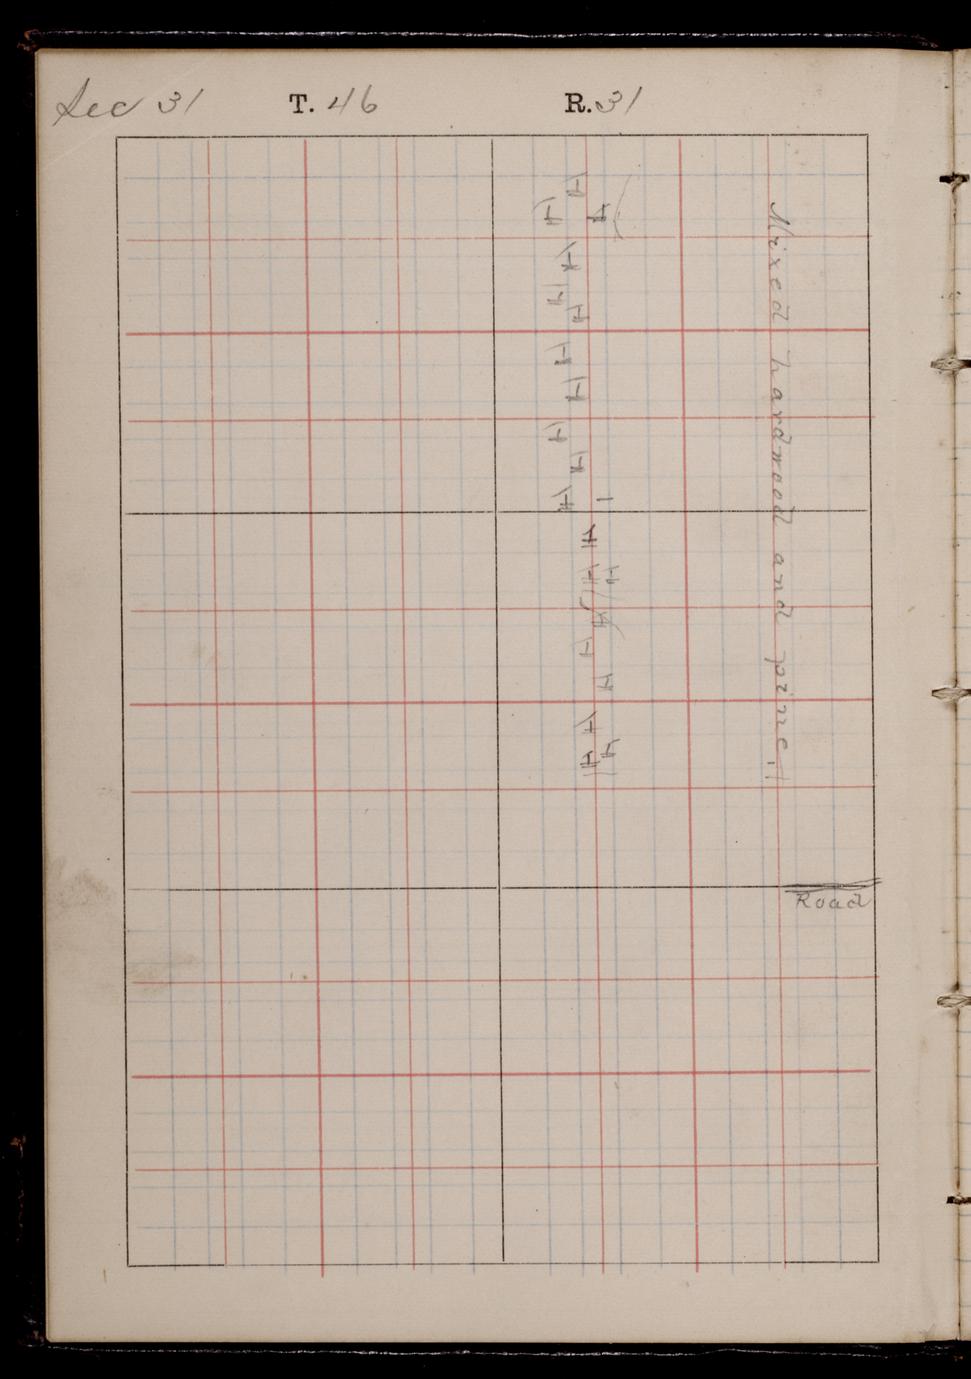 Sec 31 T. 46 R. 31
Mixed hardwood and pine
Road